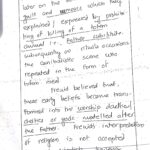 later on the
guilt and remorse which they
explained / expressed by prohibi-
ting of killing of a totem
animal i.e., totem substitute.
subsequently on rituals occasions
the cannibalistic scene was
repeated in the form of
totem feast
Freud believed that,
these early beliefs became trans-
formed into the worship
deities or gods modelled after
the father. Freud's interpretation
of religion is not accepted